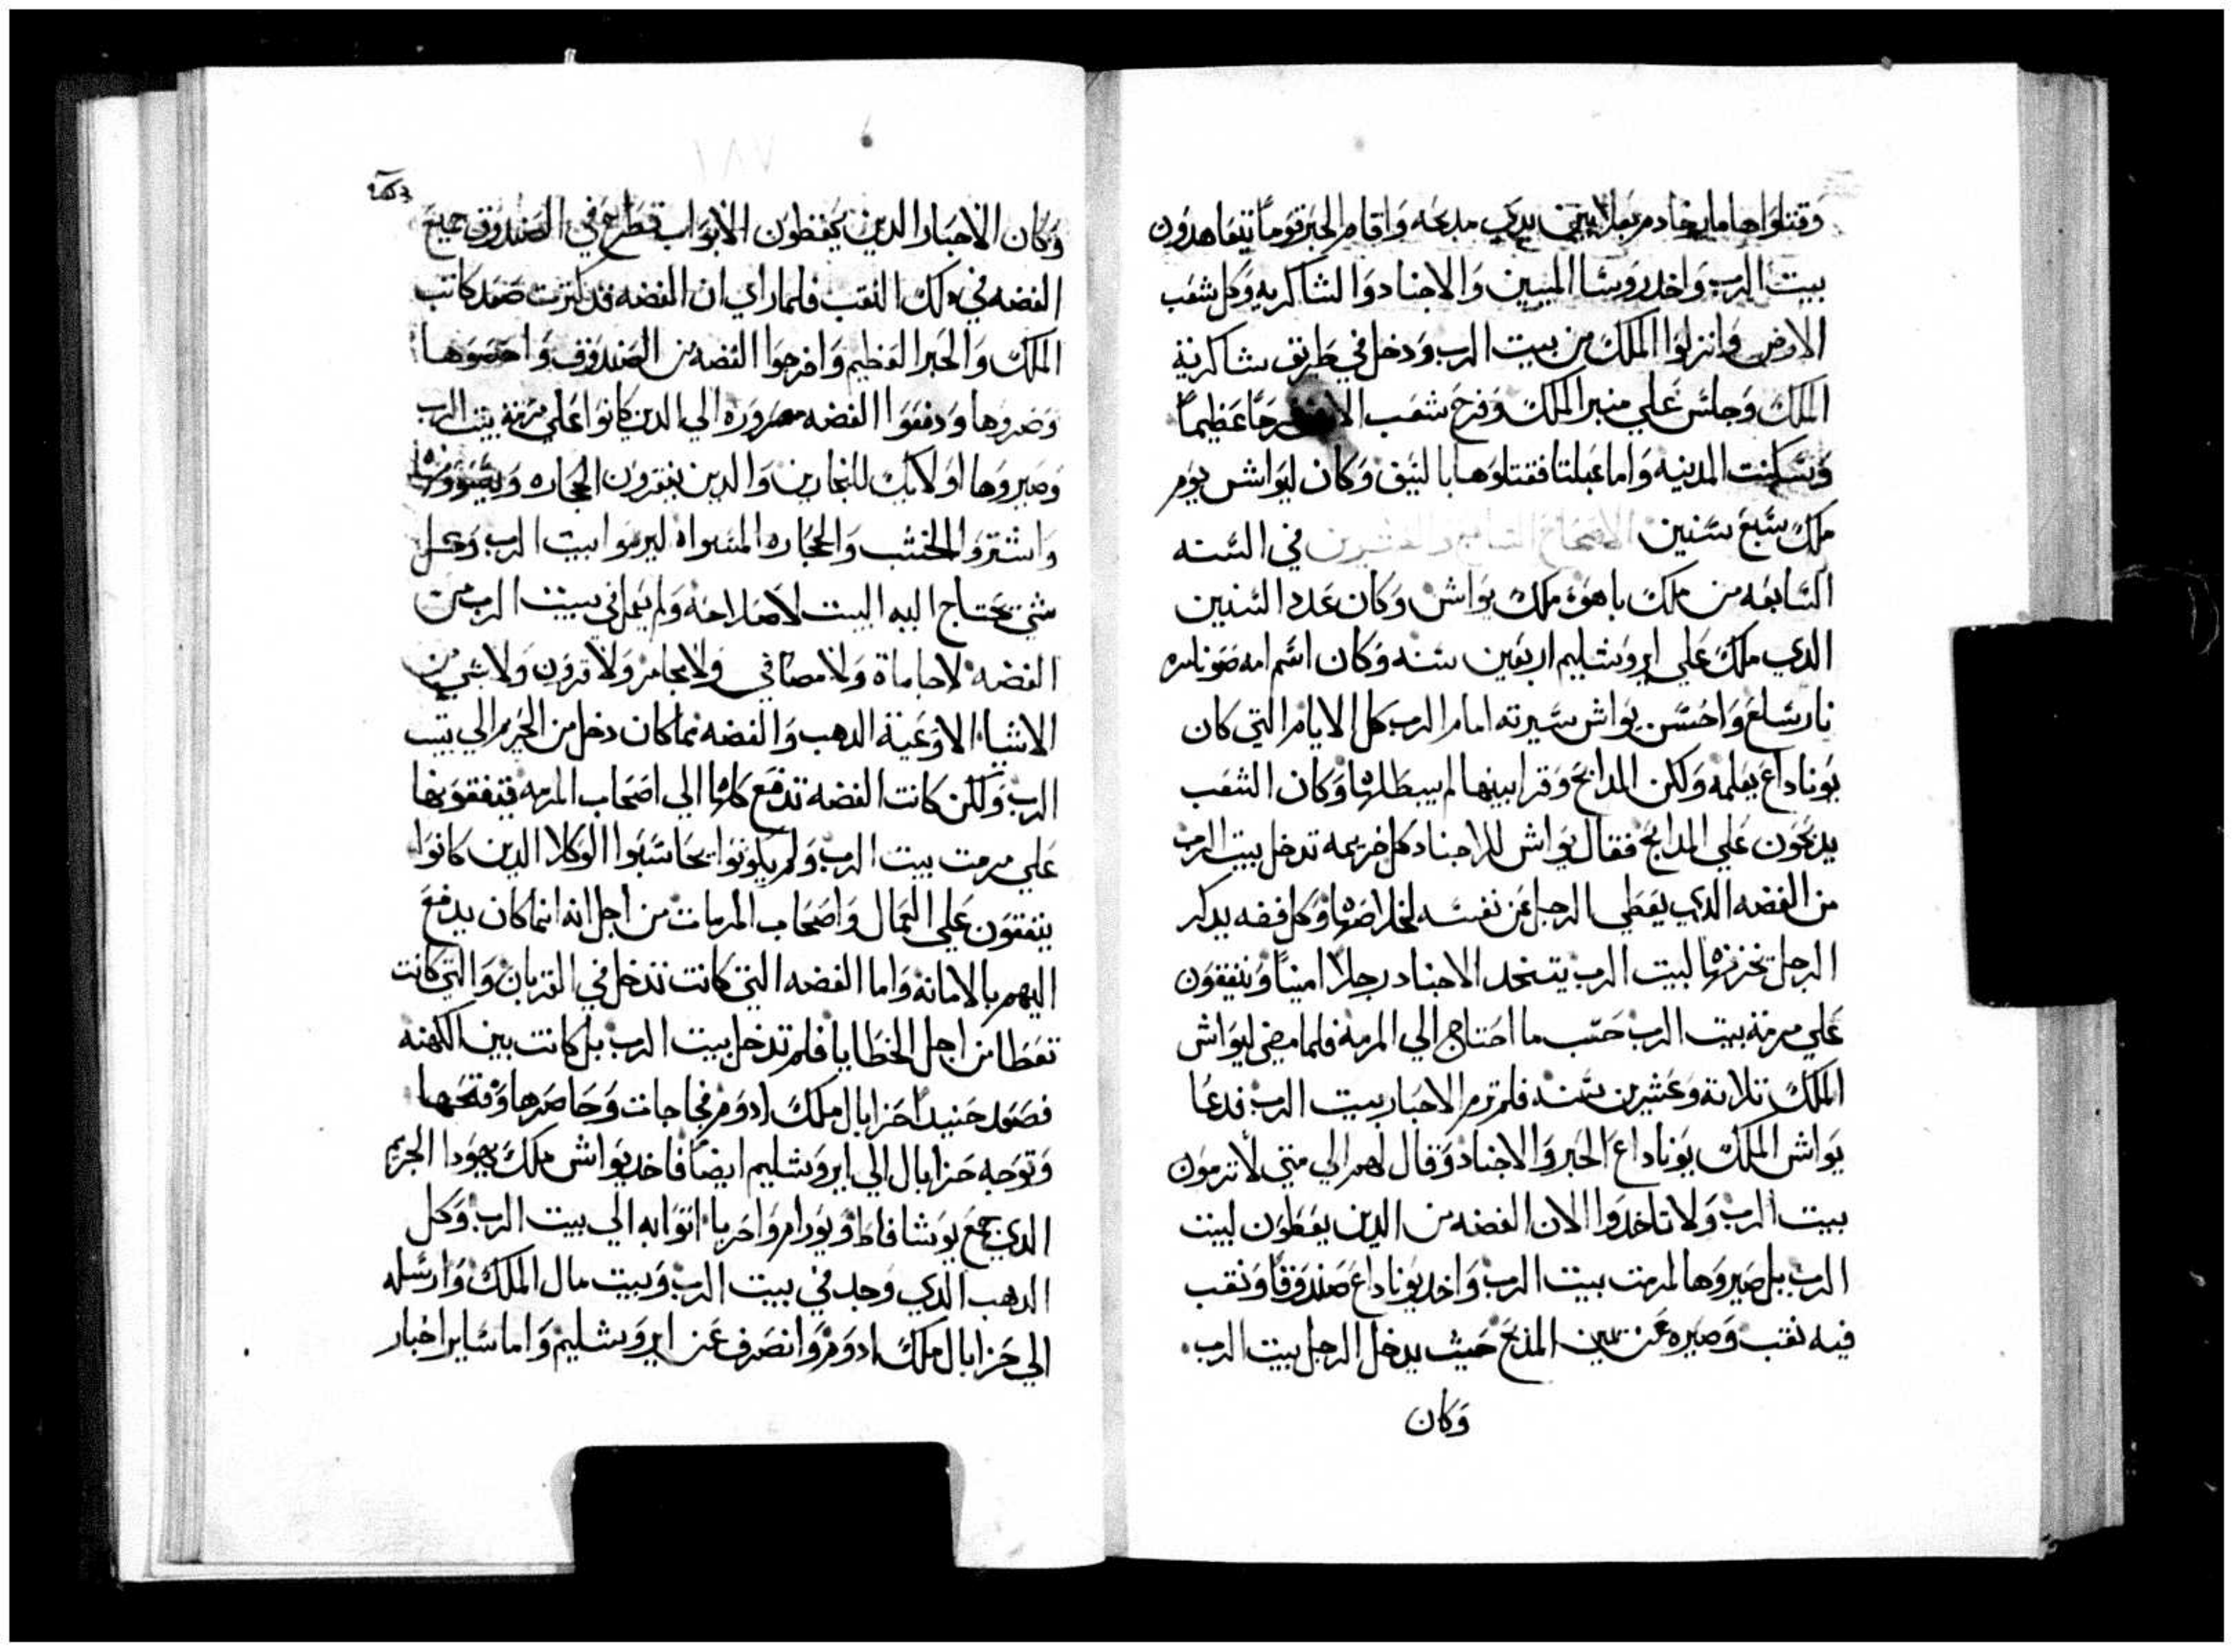 وقتلوا هاماان خادم بعلا بين يدي مدبحه واقام الحبر قوماً يتعاهدون
بيت الرب واخد روسا الميين والاجناد والشاكريه وكل شعب
الارض وانزلوا الملك من بيت الرب ودخل في طريق شاكرية
الملك وجلس علي منبر الملك وفرح شعب الارض فرحاً عظيماً
وسكنت المدينه واما عبلتا فقتلوها بالسيف وكان ليواش يوم
ملك سبع سنين الاصحاح التاسع والعشرين في السنه
السابعه من ملك ياهو ملك يواش وكان عدد السنين
الدي ملك علي ايروشليم اربعين سنه وكان اسم امه صوناىىره
نارساع واحسن يواش سيرته امام الرب كل الايام التي كان
يوناداع يعلمه ولكن المدابح وقرابينها لم يبطلها وكان الشعب
يدبحون علي المدابح فقال يواش للاجناد كل خريمه تدخل بيت الرب
من الفضه الدي يعطي الرجل عن نفسه لخلاصها وكل فضه يدكر
الرجل تخزنها لبيت الرب يتخد الاجناد رجلاً اميناً وينفقون
علي مرمة بيت الرب حسب ما احتاج الي المرمه فلما مضي ليواش
الملك تلاتة وعشرين سنه فلم ترم الاحبار بيت الرب فدعا
يواش الملك يوناداع الحبر والاجناد وقال لهم الي متي لا ترمون
بيت الرب ولا تاخدوا الان الفضه من الدين يعطون لبيت
الرب بل صيروها لمرمت بيت الرب واخد يوناداع صندوقاً ونقب
فيه نقب وصيره عن يمين المدبح حيث يدخل الرجل بيت الرب
وكان
وكان الاحبار الدين يحفظون الابواب تطرح في الصندوق جميع
الفضه في دلك النقب فلما راي ان الفضه قد كترت صعد كاتب
الملك والحبر العظيم واخرجوا الفضه من الصندوق واحصوها
وصروها ودفعوا الفضه مصروره الي الدين كانوا علي مرمة بيت الرب
وصيروها اولايك للنجارين والدين ينقرون الحجاره ويسوونها
واشتروا الخشب والحجاره المسواه ليرموا بيت الرب وكل
شي يحتاج اليه البيت لاصلاحه ولم يعمل في بيت الرب من
الفضه لا جامات ولا مصافي ولا مجامر ولا قرون ولا شي من
الاشياء الا وعية الدهب والفضه مما كان دخل من الحريم الي بيت
الرب ولكن كانت الفضه تدفع كلها الي اصحاب المرمه فينفقونها
علي مرمت بيت الرب ولم يكونوا يحاسبوا الوكلا الدين كانوا
ينفقون علي العمال واصحاب المرمات من اجل انه انما كان يدفع
اليهم بالامانة واما الفضه التي كانت تدخل في القربان والتي كانت
تعطا من اجل الخطايا فلم تدخل بيت الرب بل كانت بين الكهنه
فصعد حنيداً حزايال ملك ادوم فجا جات وحاصرها وفتحها
وتوجه حزايال الي ايروشليم ايضاً فاخد يواش ملك يهودا الحريم
الدي جمع يوشافاط ويورام واحزيا اتوابه الي بيت الرب وكل
الدهب الدي وجد في بيت الرب وبيت مال الملك وارسله
الي حزايال ملك ادوم وانصرف عن ايروشليم واما ساير اخبار